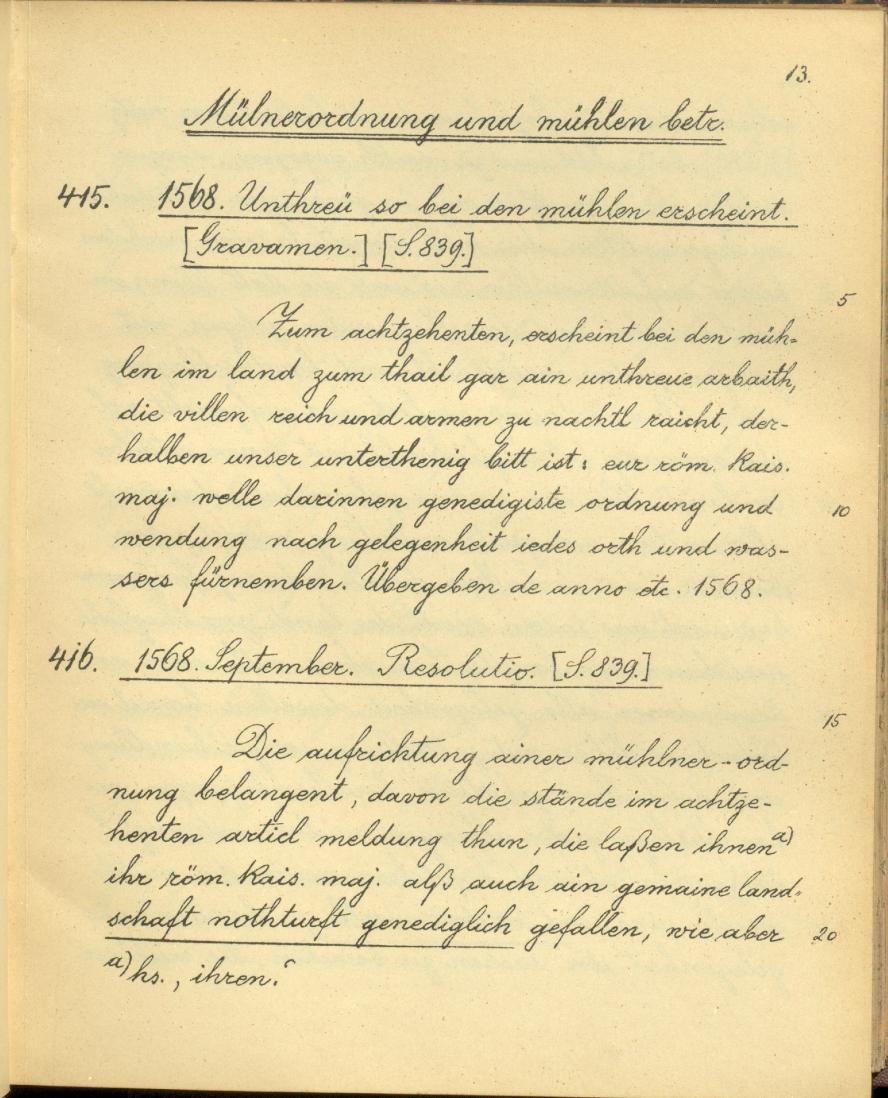 13.
Mülnerordnung und mühlen betr.
415. 1568. Unthreü so bei den mühlen erscheint.
[Gravamen.] [S. 839.]
5
Zum achtzehenten, erscheint bei den müh-
len im land zum thail gar ain unthreue arbaith,
die villen reich und armen zu nachtl raicht, der-
halben unser unterthenig bitt ist: eur röm. kais.
maj. welle darinnen genedigiste ordnung und 10
wendung nach gelegenheit iedes orth und was-
sers fürnemben. Übergeben de anno etc. 1568.
416. 1568. September. Resolutio. [S. 839.]
15
Die aufrichtung ainer mühlner-ord-
nung belangent, davon die stände im achtze-
henten articl meldung thun, die laßen ihnen a)
ihr röm. kais. maj. alß auch ain gemaine land-
schaft nothturft genediglich gefallen, wie aber 20
a) hs. „ihren.“